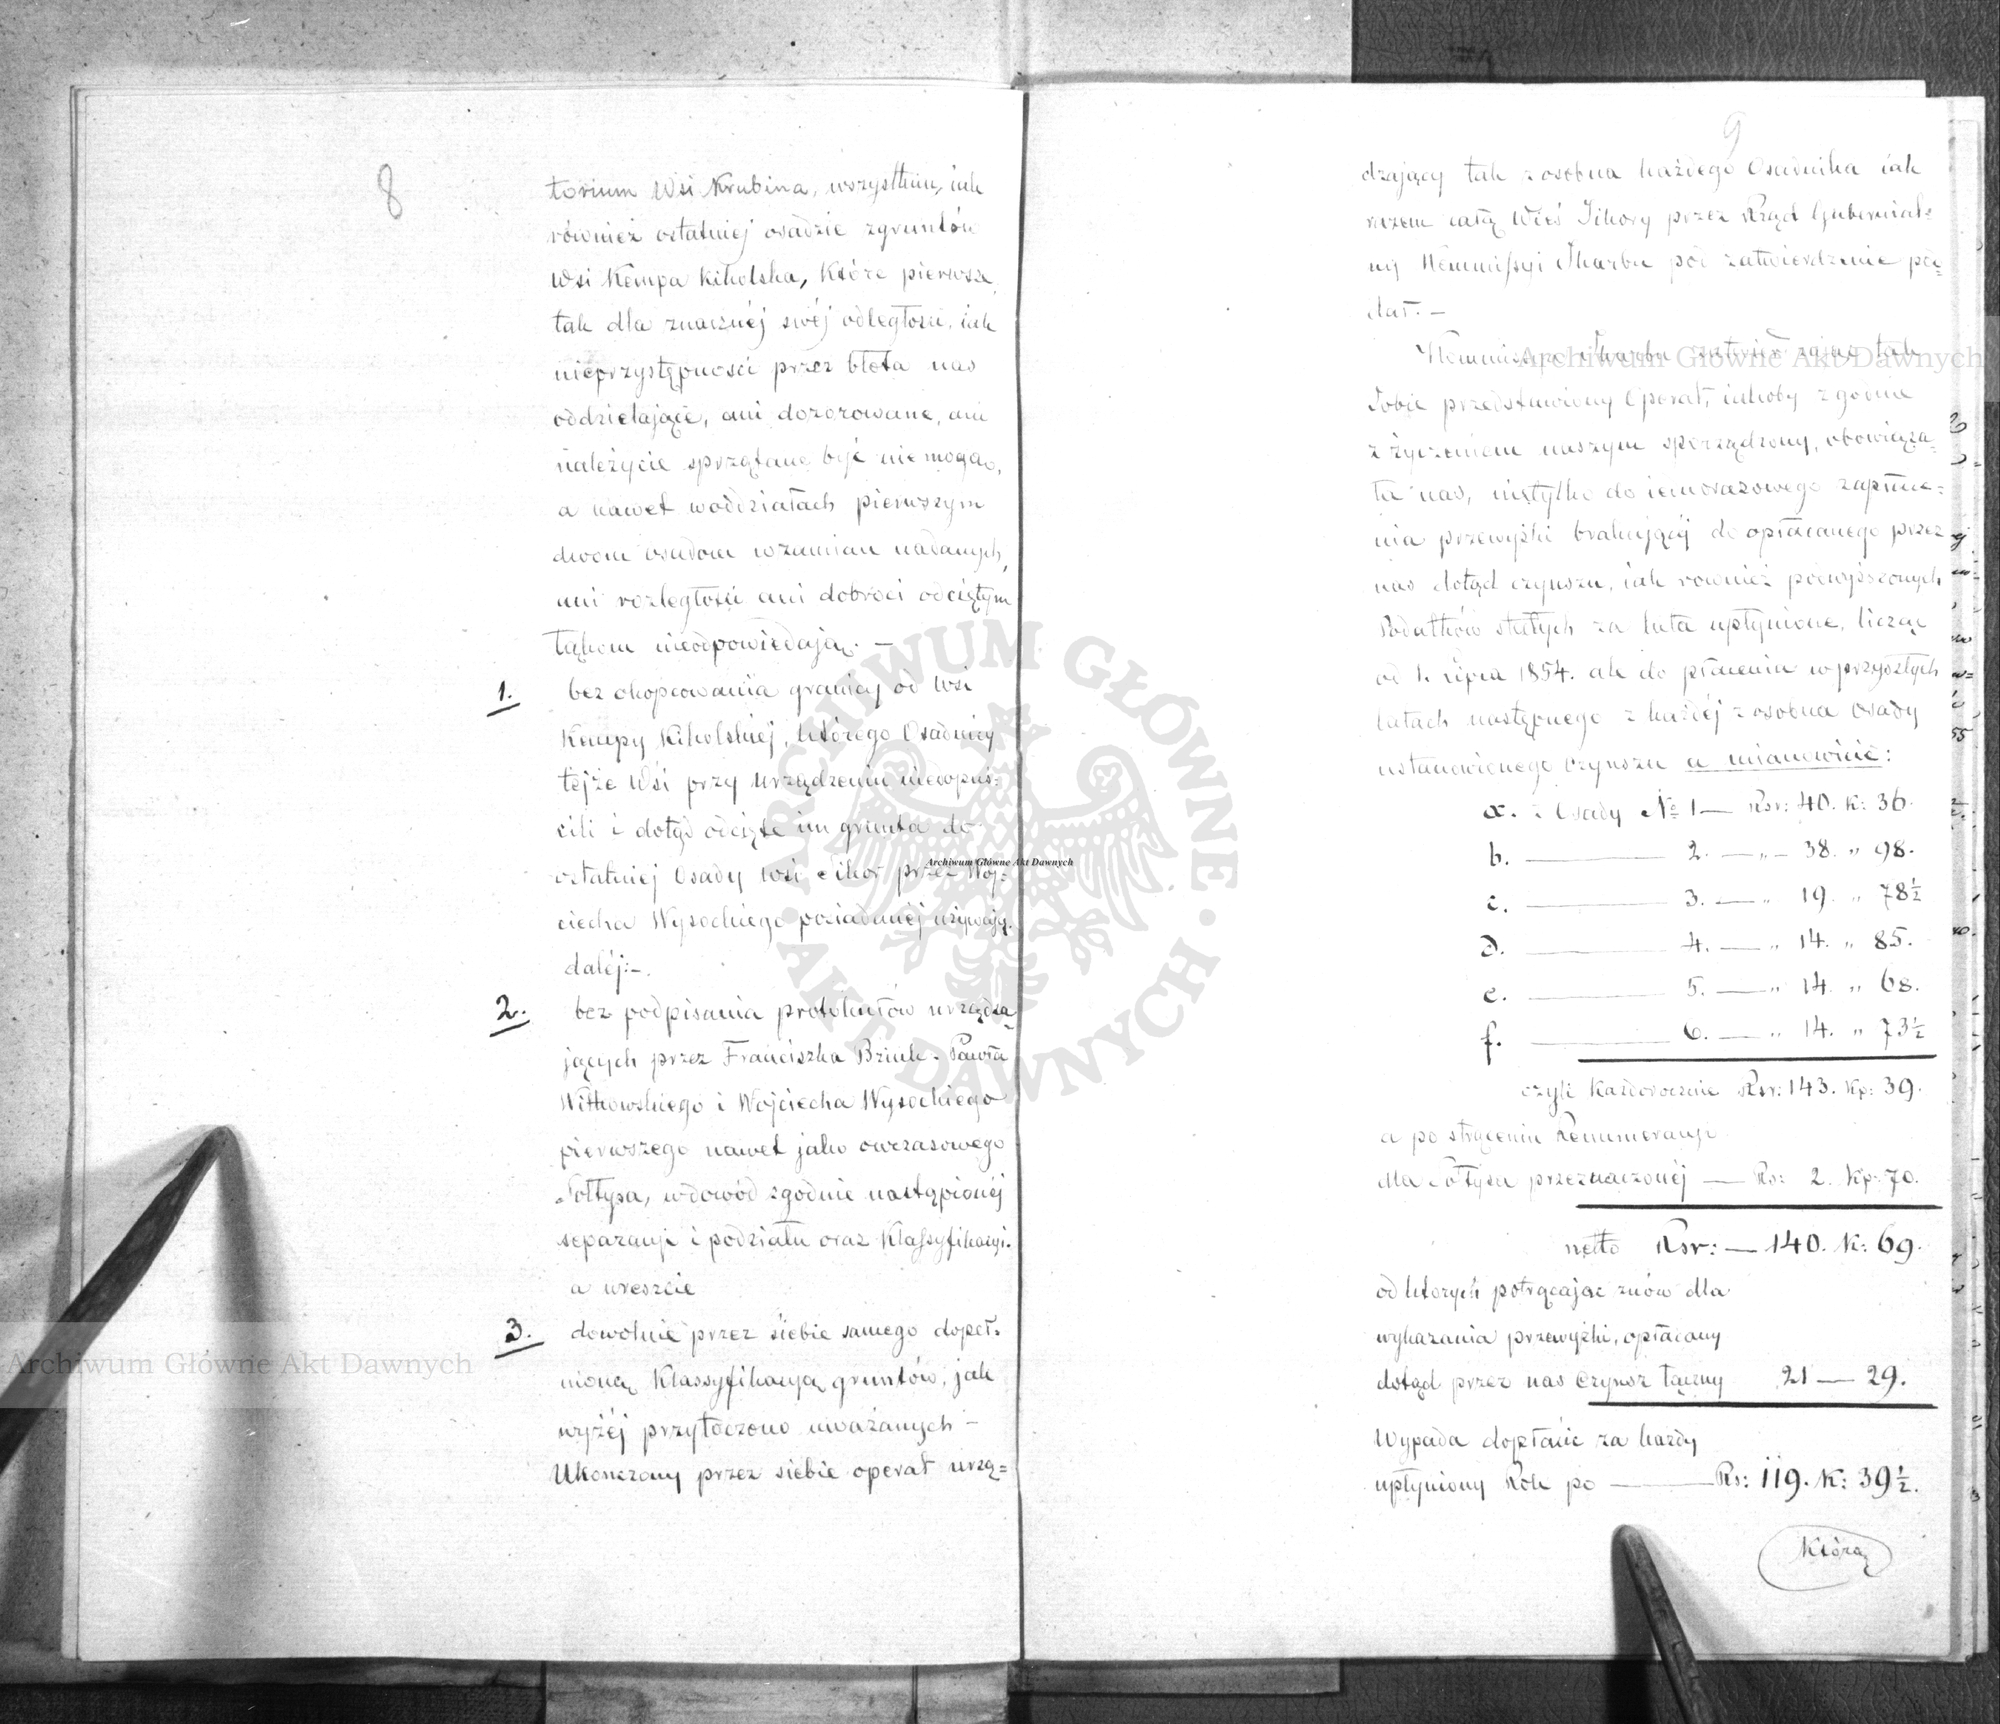 8
torium Wsi Krubina, wszystkim, iak
również ostatniej osadzie zgruntów
Wsi Kempa Kikolska, które pierwsze
tak dla znacznéj swéj odległości, iak
nieprzystępności przez błota nas
oddzielające, ani dozorowane, ani
należycie sprzątane być niemogą,
a nawet woddziałach pierwszym
dwom osadom wzamian nadanych,
ani rozległości ani dobroci odciętym
łąkom nieodpowiedają. —
1. bez okopcowania granicy od Wsi
Kempy Kikolskiej, którego Osadnicy
tejże Wsi przy urządzeniu niedopuś=
cili i dotąd odcięte im grunta do
ostatniej Osady wsi Sikor przez Woj=
ciecha Wysockiego posiadanéj używają.
daléj:-.
2. bez podpisania protokułów urządza
jących przez Franciszka Bziuk. Pawła
Witkowskiego i Wojciecha Wysockiego
pierwszego nawet jako owczasowego
Sołtysa, wdowód zgodnie nastąpionéj
separacji i podziału oraz Klassyfikacyi.
a wreszcie
3. dowolnie przez siebie samego dopeł=
nioną Klassyfikacją gruntów, jak
wyżéj przytoczono uważanych —
Ukończony przez siebie operat urzą=
9
dzający tak zosobna każdego Osadnika iak
razem całą Wieś Sikory przez Rząd Gubernial=
ny Kommissyi Skarbu pod zatwierdzenie po=
dał. —
Kommissya Skarbu zatwierdzając tak
Sobie przedstawiony Operat, iakoby zgodnie
z życzeniem naszym sporządzony, obowiąza=
ła nas, nietylko do iednorazowego zapłace=
nia przewyżki brakującéj do opłacanego przez
nas dotąd czynszu, iak również podwyższonych
Podatków stałych za lata upłynione, licząc
od 1. Lipca 1854. ale do płacenia wprzyszłych
latach następnego z każdéj zosobna Osady
ustanowionego Czynszu a mianowicie:
a. z Osady № 1 — Rsr: 40. K: 36.
b. — 2. — „ — 38. „ 98.
c. — 3. — „ 19. „ 78½
d. — 4. — „ 14. „ 85.
e. — 5. — „ 14. „ 68.
f. — 6. — „ 14. „ 73½
czyli Każdorocznie Rsr: 143. Kp: 39.
a po strąceniu Renumeracji
dla Sołtysa przeznaczonéj — Rs: 2. Kp: 70.
netto Rsr: — 140. K: 69.
od których potrącając znów dla
wykazania przewyżki, opłacany
dotąd przez nas Czynsz łączny 21 — 29.
Wypada dopłacić za każdy
upłyniony Rok po — Rs: 119. K: 39½.
Którą
Archiwum Główne Akt Dawnych
Archiwum Główne Akt Dawnych
Archiwum Główne Akt Dawnych
ARCHIWUM GŁÓWNE · AKT DAWNYCH ·